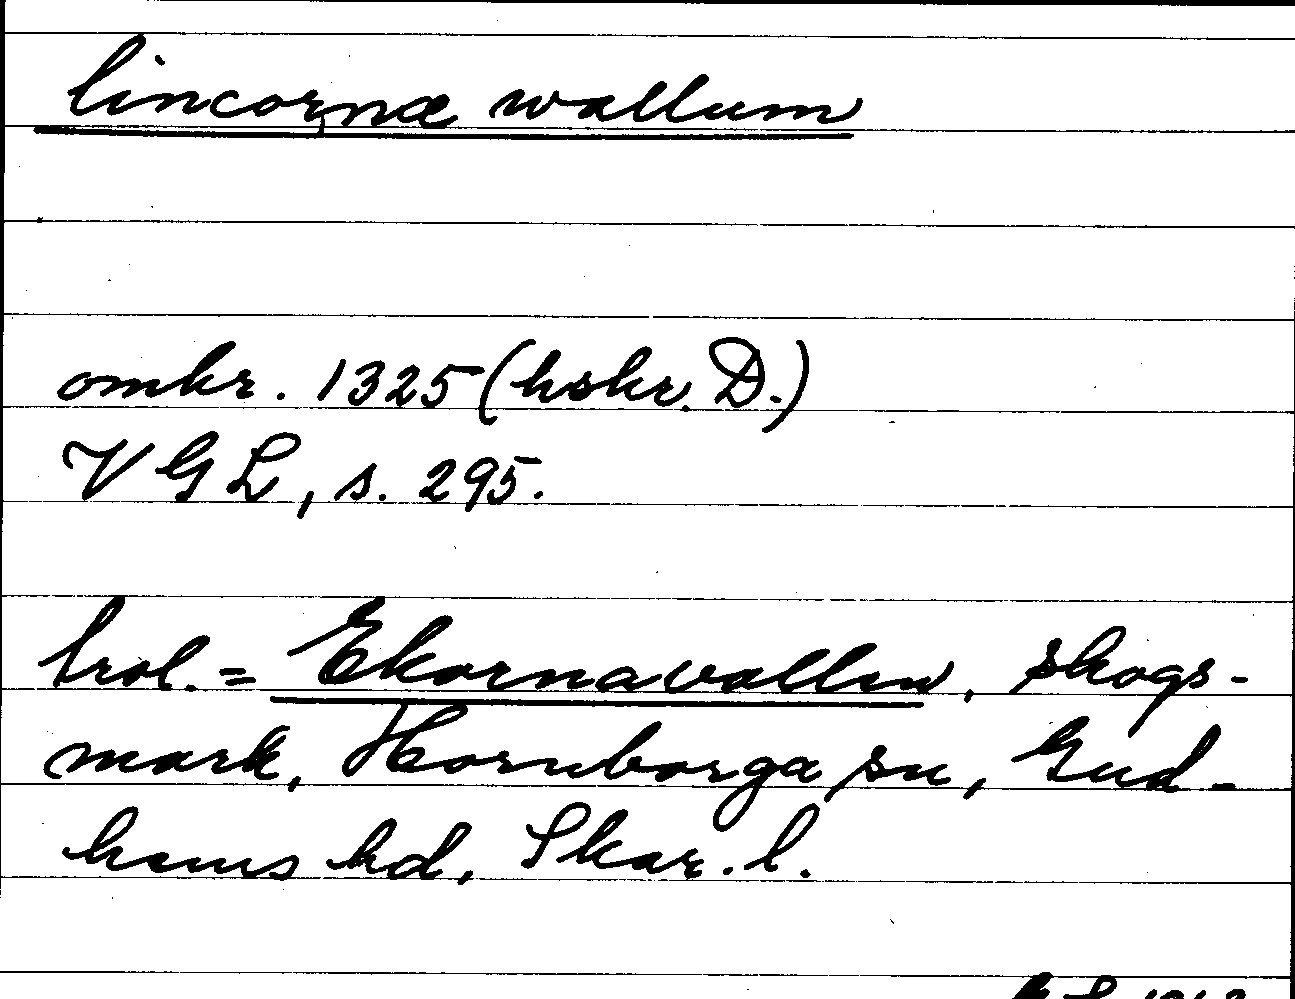 lincornæ wallum
omkr. 1325 (hskr. D.)
VGL, s. 295.
trol. = Ekornavallen, skogs-
mark, Hornborga sn, Gud-
hems hd, Skar. l.